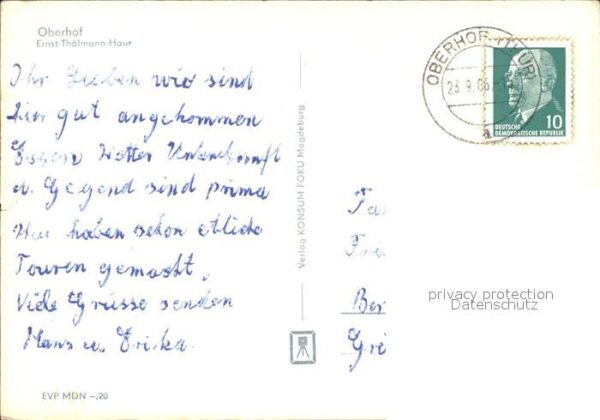 Oberhof
Ernst-Thälmann-Haus
Ihr Lieben wir sind
hier gut angekommen
Essen Wetter Unterkunft
u. Gegend sind prima
Wir haben schon etliche
Touren gemacht,
Viele Grüsse senden
Hans u. Erika.
EVP MDN -,20
Verlag KONSUM FOKU Magdeburg
OBERHOF (THÜR)
23.9.66
a
10
DEUTSCHE
DEMOKRATISCHE REPUBLIK
Fa
Fri
Ber
Grü
privacy protection
Datenschutz